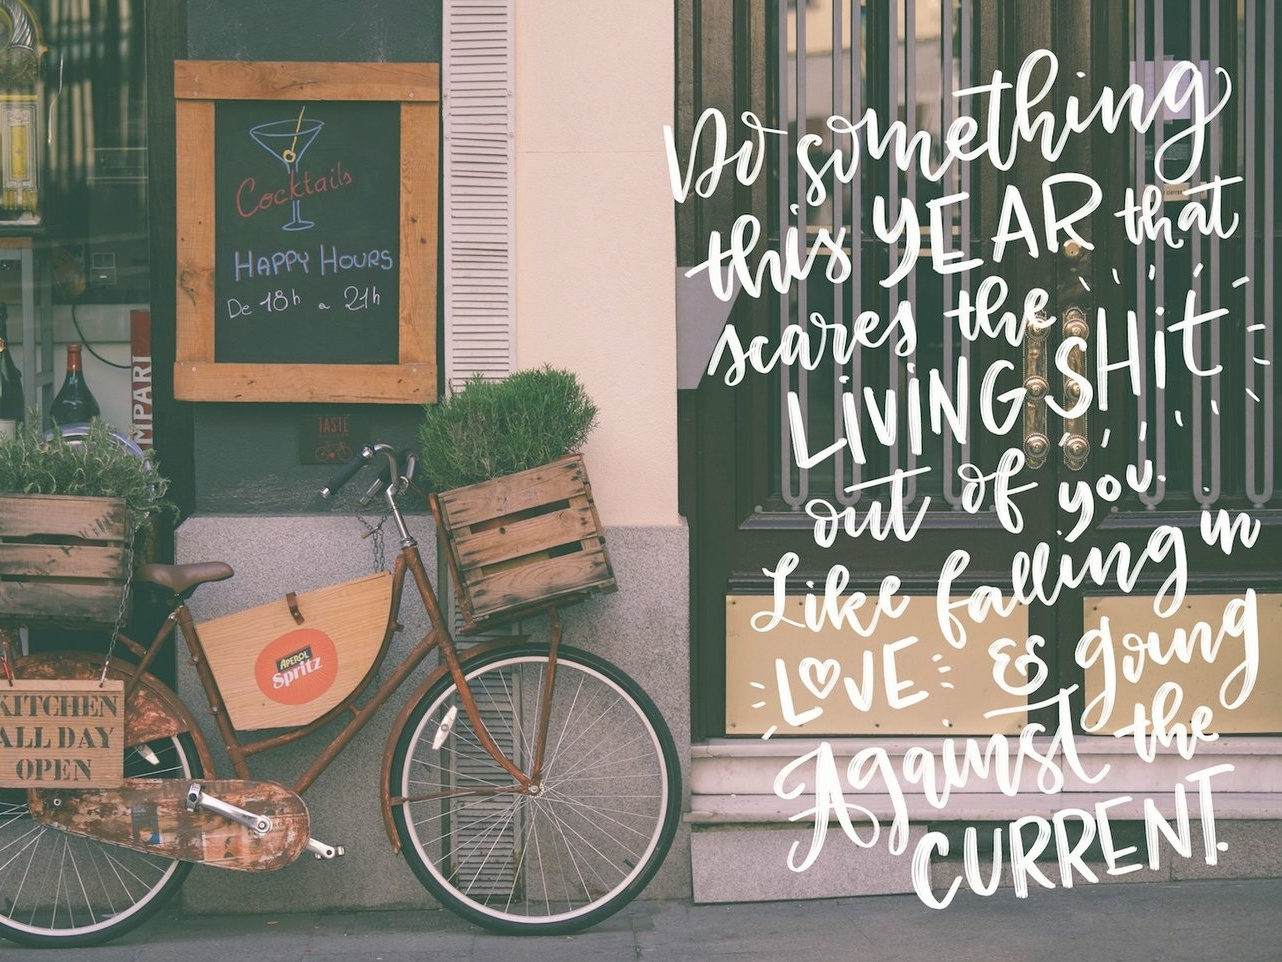 Cocktails
HAPPY HOURS
De 18h a 21h
MPARI
TASTE
APEROL
Spritz
KITCHEN
ALL DAY
OPEN
Do something
this YEAR that
scares the
LIVING SHIT
out of you.
Like falling in
LOVE & going
Against the
CURRENT.